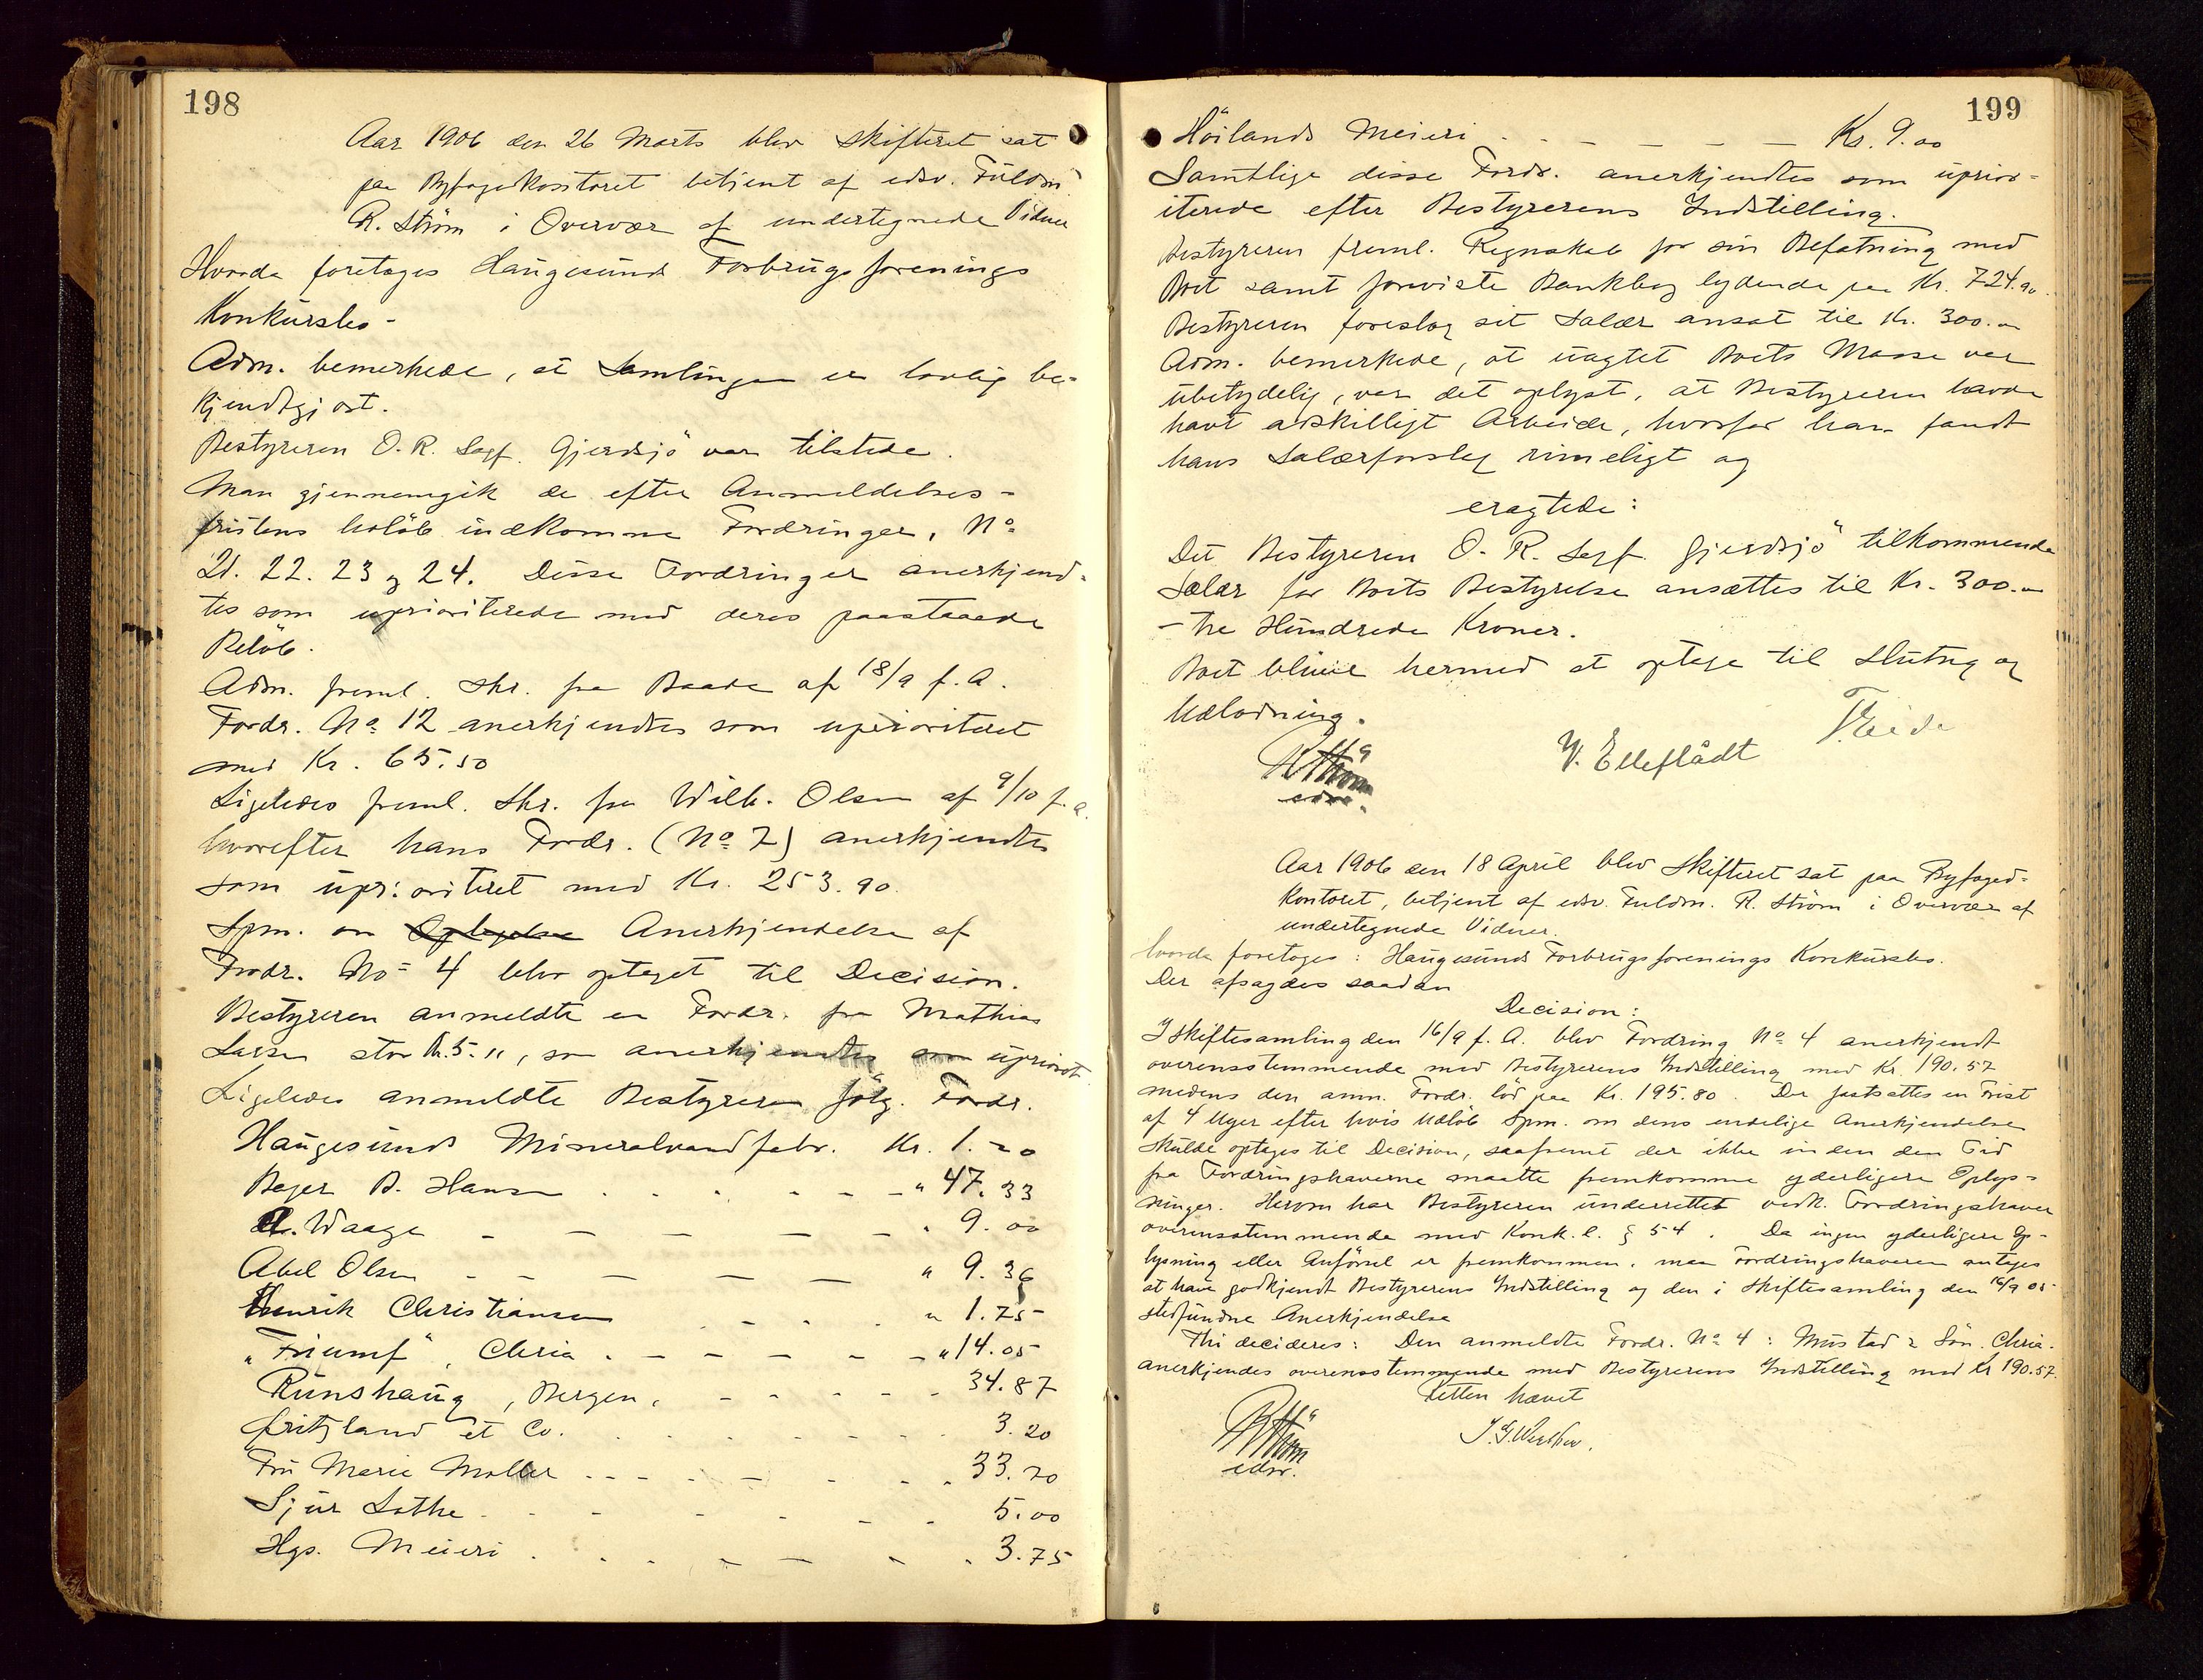 198
Aar 1906 den 26 Marts blev Skifteret sat
paa Byfogedkontoret betjent af edsv. Fuldm.
R. Strøm i Overvær af undertegnede Vidner
Hvorda foretoges Haugesunds Forbrugsforenings
Konkursbo -
Adm. bemerkede, at Samlingen er lovlig be-
kjendtgjort.
Bestyreren O. R. Sagf. Gjerdsjö var tilstede.
Man gjennemgik de efter Anmeldelses-
fristens Udløb indkomne Fordringer, No
21. 22. 23 og 24. Disse Fordringer anerkjend-
tes som uprioriterede med deres paastaaede
Beløb.
Adm. freml. Skr. fra Baade af 18/9 f. A.
Fordr. No 12 anerkjendtes som uprioriteret
med Kr. 65.50
Ligeledes freml. Skr. fra Wilh. Olsen af 9/10 f. A.
hvorefter hans Fordr. (No 7) anerkjendtes
som uprioriteret med Kr. 253.90.
Spm. om Oplyselse Anerkjendelse af
Fordr. No 4 blev optaget til Decision.
Bestyreren anmeldte en Fordr. fra Mathias
Larsen stor Kr. 5. ", som anerkjendtes som upriorit.
Ligeledes anmeldte Bestyreren følg. Fordr.
Haugesunds Mineralvandfabr. Kr. 1.20
Bager B. Hansen . . . . - - " 47.33
A. Waage - - - - - " 9.00
Abel Olsen - - - - - " 9.36
Henrik Christiansen . . . " 1.75
"Triumf", Chria . - - - - - " 14.05
Runshaug, Bergen, - - - - - 34.87
Fritzland et Co. . . . . . . 3.20
Fru Marie Møller - - - - - - 33.70
Sjur Lothe - - - - - - 5.00
Hgs. Meieri . . - - - - 3.75
199
Höilands Meieri - - - - - - Kr. 9.00
Samtlige disse Fordr. anerkjendtes som uprior-
iterede efter Bestyrerens Indstilling.
Bestyreren freml. Regnskab for sin Befatning med
Boet samt foreviste Bankbog lydende paa Kr. 724.90.
Bestyreren foreslog sit Salær ansat til Kr. 300.-
Adm. bemerkede, at uagtet Boets Masse var
ubetydelig, var det oplyst, at Bestyreren havde
havt adskilligt Arbeide, hvorfor han fandt
hans Salærforslag rimeligt og
eragtede:
Det Bestyreren O. R. Sagf. Gjerdsjö tilkommende
Salær for Boets Bestyrelse ansættes til Kr. 300.-
- tre Hundrede Kroner.
Boet bliver hermed at optage til Slutng og
Udlodning.
R Strøm
edsv.
V. Elleflådt
T. Eide
Aar 1906 den 18 April blev Skifteret sat paa Byfoged-
kontoret, betjent af edsv. Fuldm. R. Strøm i Overvær af
undertegnede Vidner.
hvorda foretoges: Haugesunds Forbrugsforenings Konkursbo.
Der afsagdes saadan
Decision:
I Skiftesamling den 16/9 f. A. blev Fordring No 4 anerkjendt
overensstemmende med Bestyrerens Indstilling med Kr. 190.57
medens den anm. Fordr. lød paa Kr. 195.80. Der fastsattes en Frist
af 4 Uger efter hvis Udløb Spm. om dens endelige Anerkjendelse
skulde optages til Decision, saafremt der ikke inden den Tid
fra Fordringshaverne maatte fremkomme yderligere Oplys-
ninger. Herom har Bestyreren underrettet vedk. Fordringshaver
overensstemmende med Konk.l. § 54. Da ingen yderligere Op-
lysning eller Anførsel er fremkommen, maa Fordringshaveren antages
at have godkjendt Bestyrerens Indstilling og den i Skiftesamling den 16/9 05
stedfundne Anerkjendelse
Thi decideres: Den anmeldte Fordr. No 4: Mustad & Søn. Chria.
anerkjendes overensstemmende med Bestyrerens Indstilling med Kr 190.57.
Retten hævet
R Strøm
edsv.